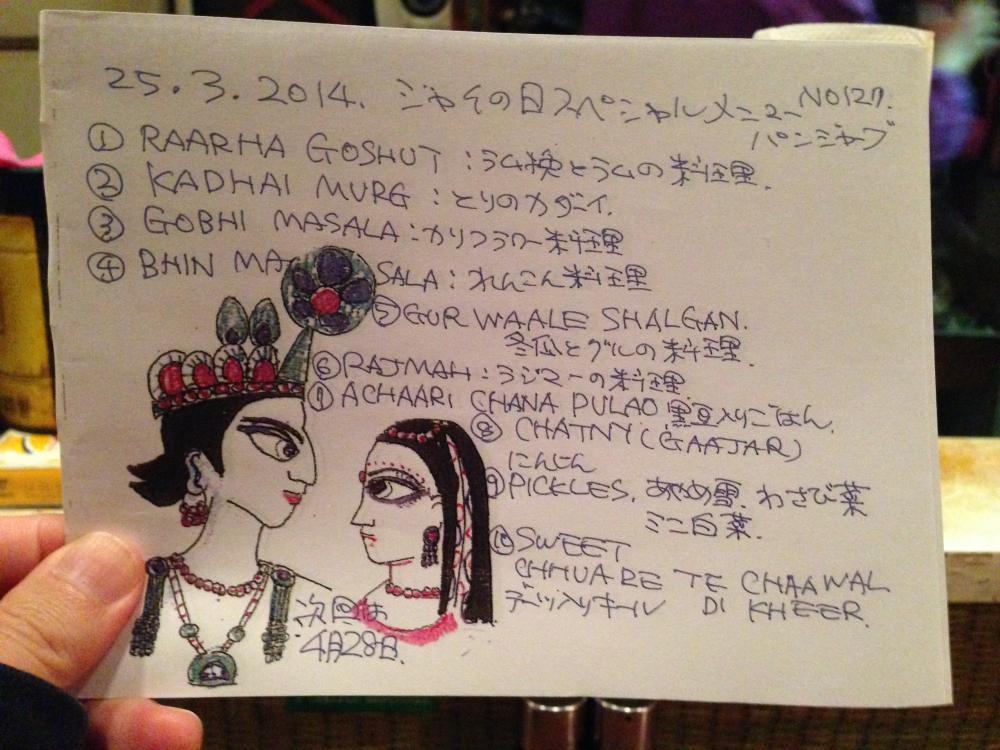 25.3.2014. ジャイの日スペシャルメニュー NO127.
パンジャブ
① RAARHA GOSHUT : ラム挽とラムの料理.
② KADHAI MURG : とりのカダイ.
③ GOBHI MASALA : カリフラワー料理
④ BHIN MASALA : れんこん料理
⑤ GUR WAALE SHALGAN.
冬瓜とグルの料理.
⑥ RAJMAH : ラジマーの料理
⑦ ACHAARI CHANA PULAO 黒豆入りごはん.
⑧ CHATNY (GAAJAR)
にんじん
⑨ PICKLES. あやめ雪. わさび菜
ミニ白菜.
⑩ SWEET
CHHUARE TE CHAAWAL
デーツ入りキール DI KHEER.
次回は
4月28日.